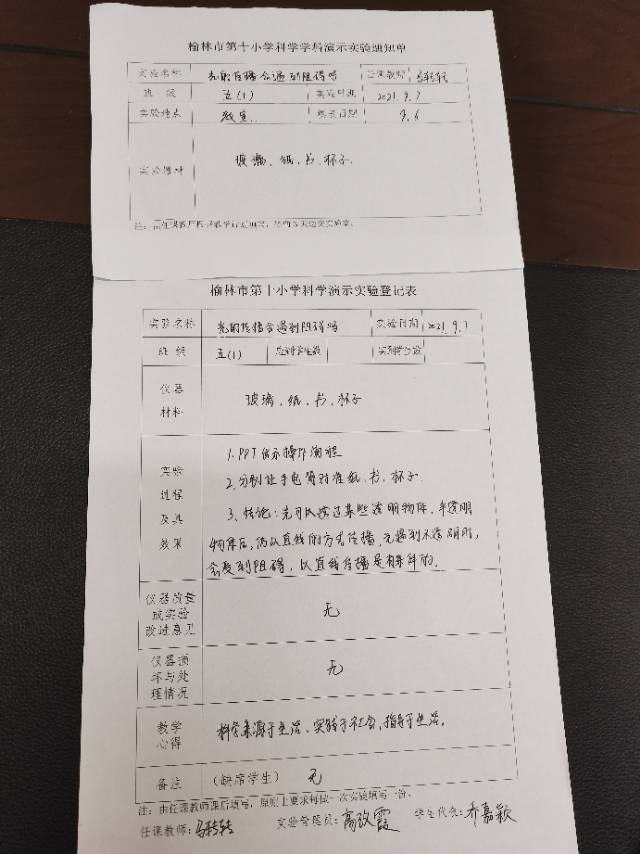 榆林市第十小学科学学科演示实验通知单
实验名称 光的传播会遇到阻碍吗 任课教师
班级 五(1) 实验时间 2021.9.7
实验地点 教室 通知日期 9.6
实验器材 玻璃、纸、书、杯子.
榆林市第十小学科学演示实验登记表
实验名称 光的传播会遇到阻碍吗 实验时间 2021.9.7
班级 五(1) 应到学生数 实到学生数
仪器 材料 玻璃、纸、书、杯子
实验 过程 及其 效果
1. PPT展示操作流程
2. 分别让手电筒对准纸、书、杯子.
3. 结论: 光可以透过某些透明物体、半透明
物体后,仍以直线的方式传播,光遇到不透明时,
会受到阻碍, 以直线传播是有条件的.
仪器质量 或实验 改进意见 无
仪器损 坏与处 理情况 无
教学 心得 科学来源于生活、实践于社会,指导于生活.
备注 (缺席学生) 无
注:由任课教师课后填写,原则上要求每做一次实验填写一份。
任课教师: 实验管理员: 高改霞 学生代表: 乔嘉颖